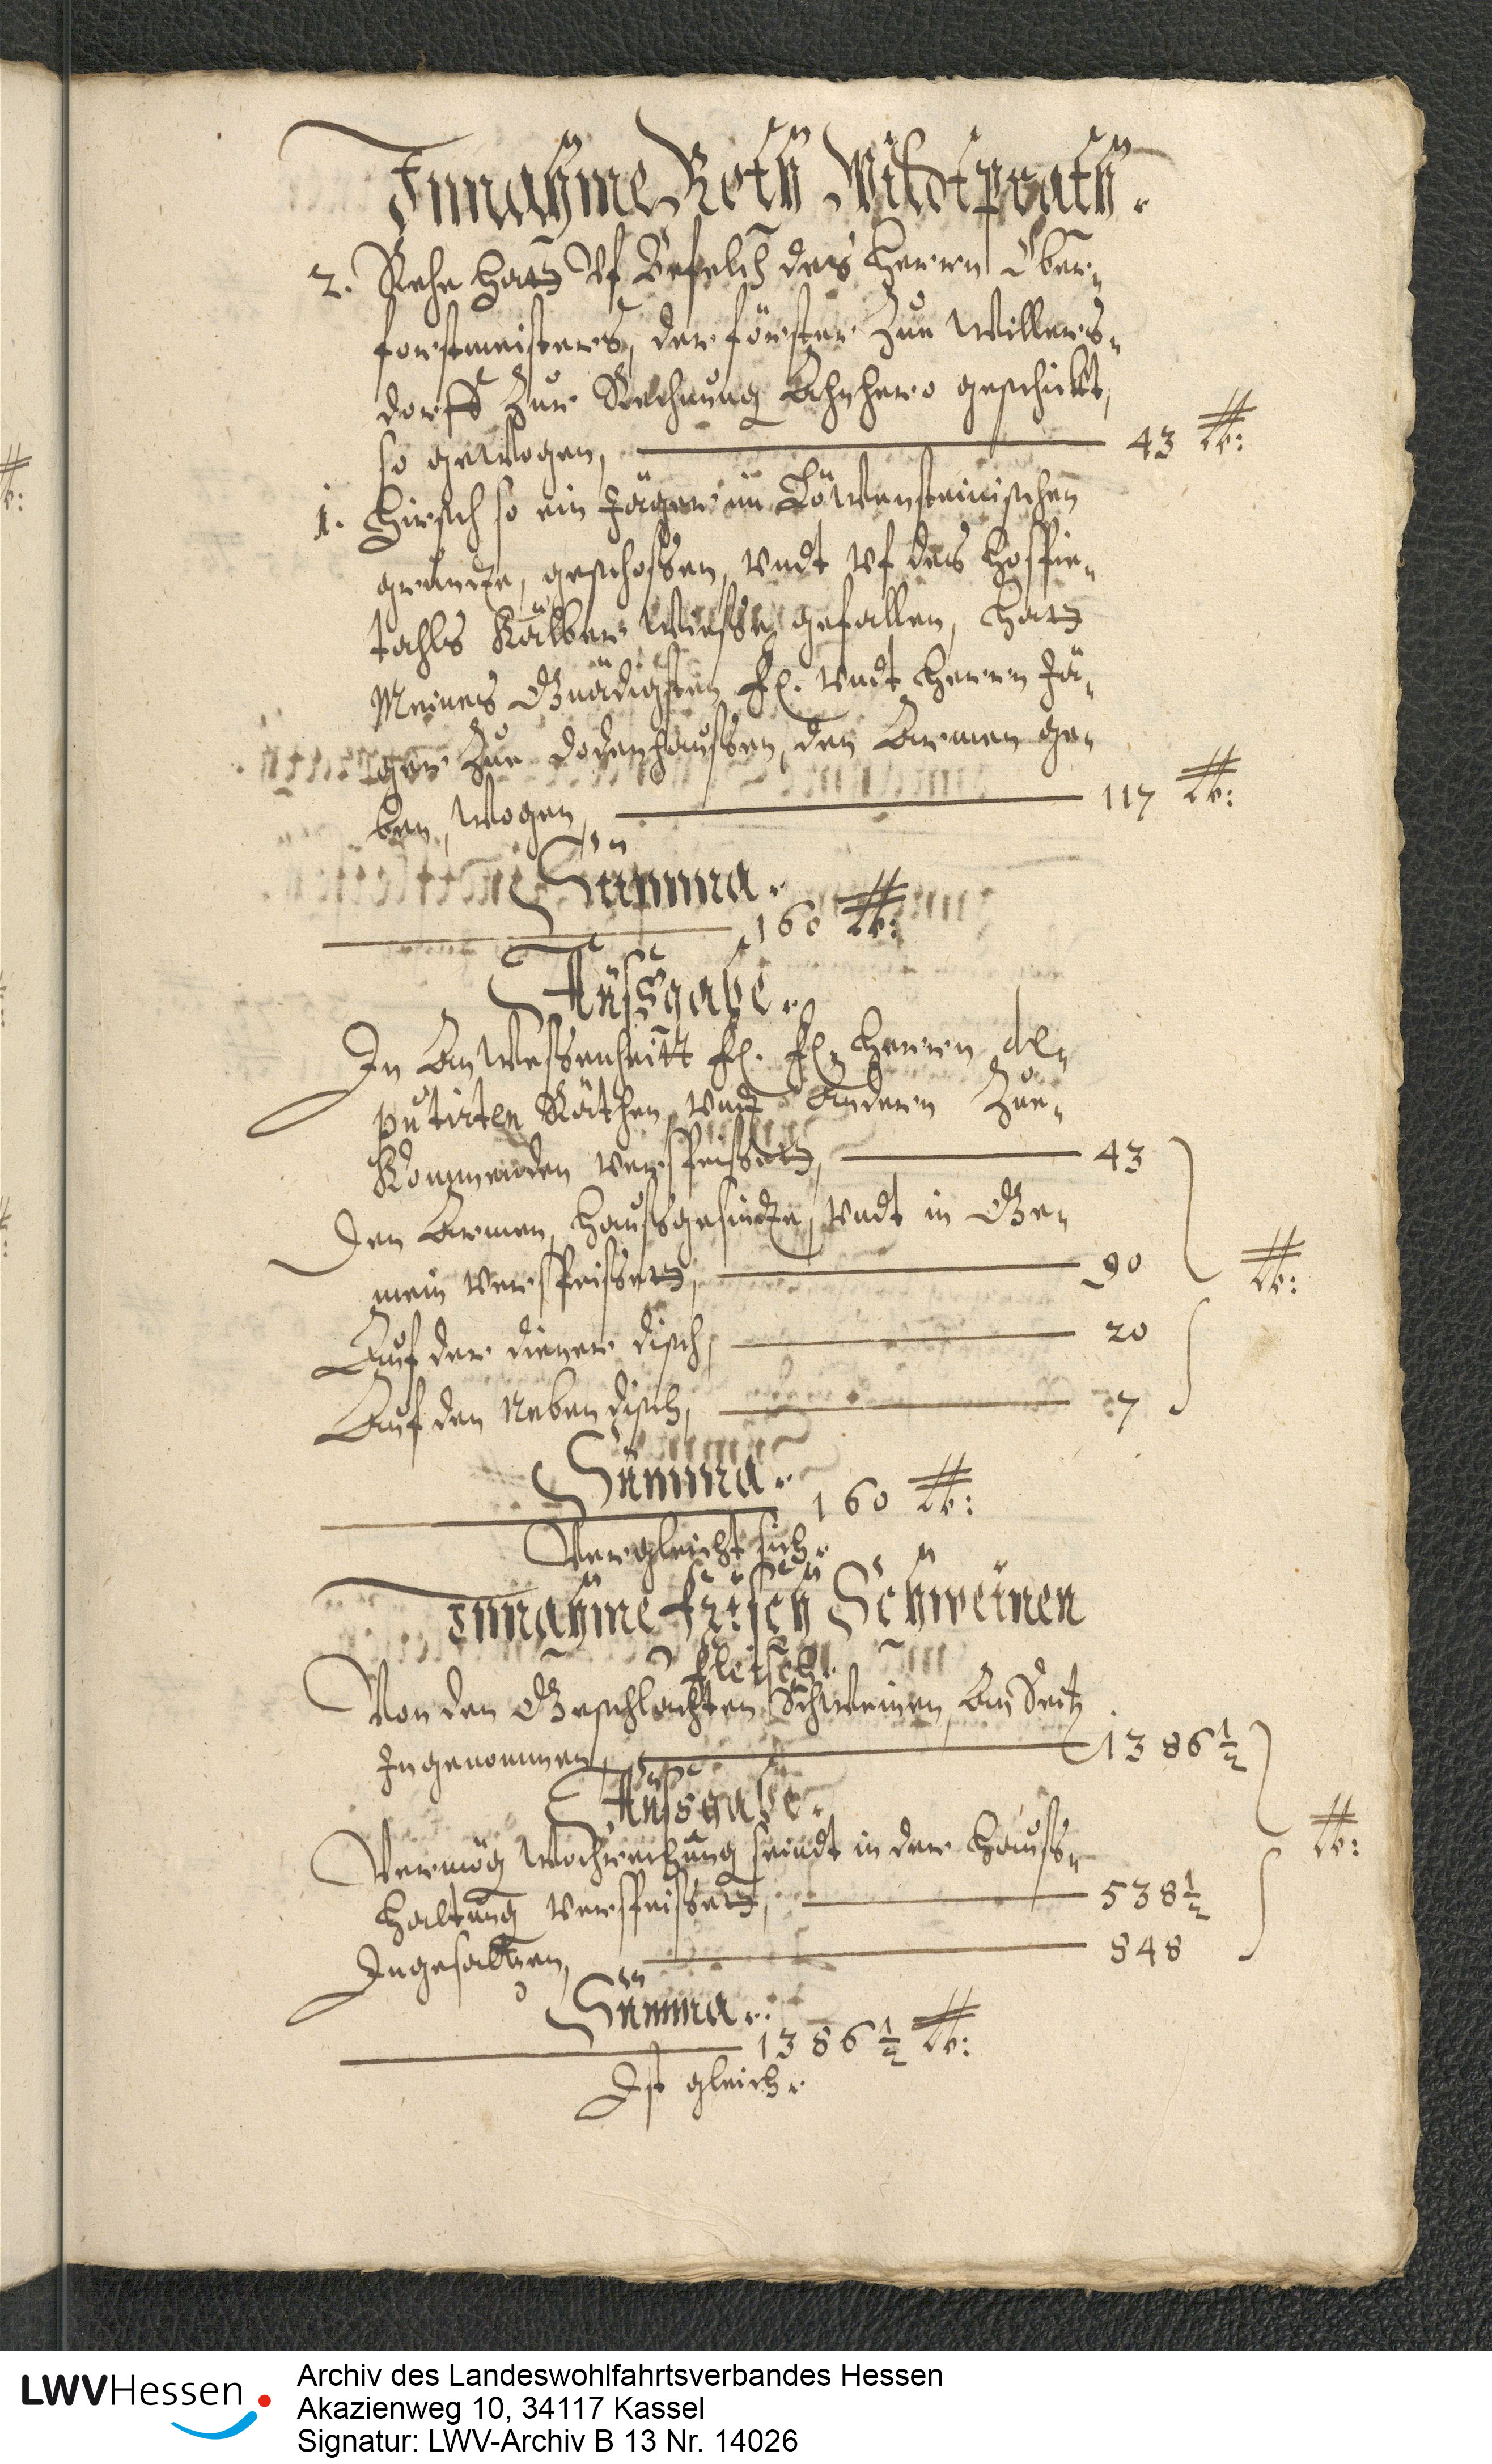 Innahme Roth Wildtprath.
2. Rehe hatt Vf Befelch des Herrn Ober-
forstmeisters, der förster Zue Willers-
dorff Zur Rechnung Ahnhero geschickt,
so gewogen, 43 lb:
1. Hirsch so ein Jäger im Löwensteinischen
grundte, geschossen, vndt vf des Hospie-
tahls Kälber Wiesse gefallen, hatt
Meines Gnädigsten F. vndt Herrn Jä-
ger Zue Dodenhaussen, den Armen ge-
ben, wogen, 117 lb:
Summa.
160 lb:
Aussgabe.
In Anwessenheitt F. F. Herrn de-
putirten Räthen, vndt Andern Zue-
Kommenden verspeisset, 43
Den Armen, Haussgesindte, vndt in Ge-
mein verspeisset, 90 lb:
Auf der diener disch, 20
Auf den Neben disch, 7
Summa.
160 lb:
Vergleicht sich.
Innahme frisch Schweinen
fleisch.
Von den Geschlachten Schweinen, An Seit
Ingenommen, 1386 1/2
Aussgabe.
Vermög Wochrechnung seindt in der Hauss-
haltung verspeisset, 538 1/2 lb:
Ingesaltzen, 848
Summa.
1386 1/2 lb:
Ist gleich.
LWVHessen
Archiv des Landeswohlfahrtsverbandes Hessen
Akazienweg 10, 34117 Kassel
Signatur: LWV-Archiv B 13 Nr. 14026